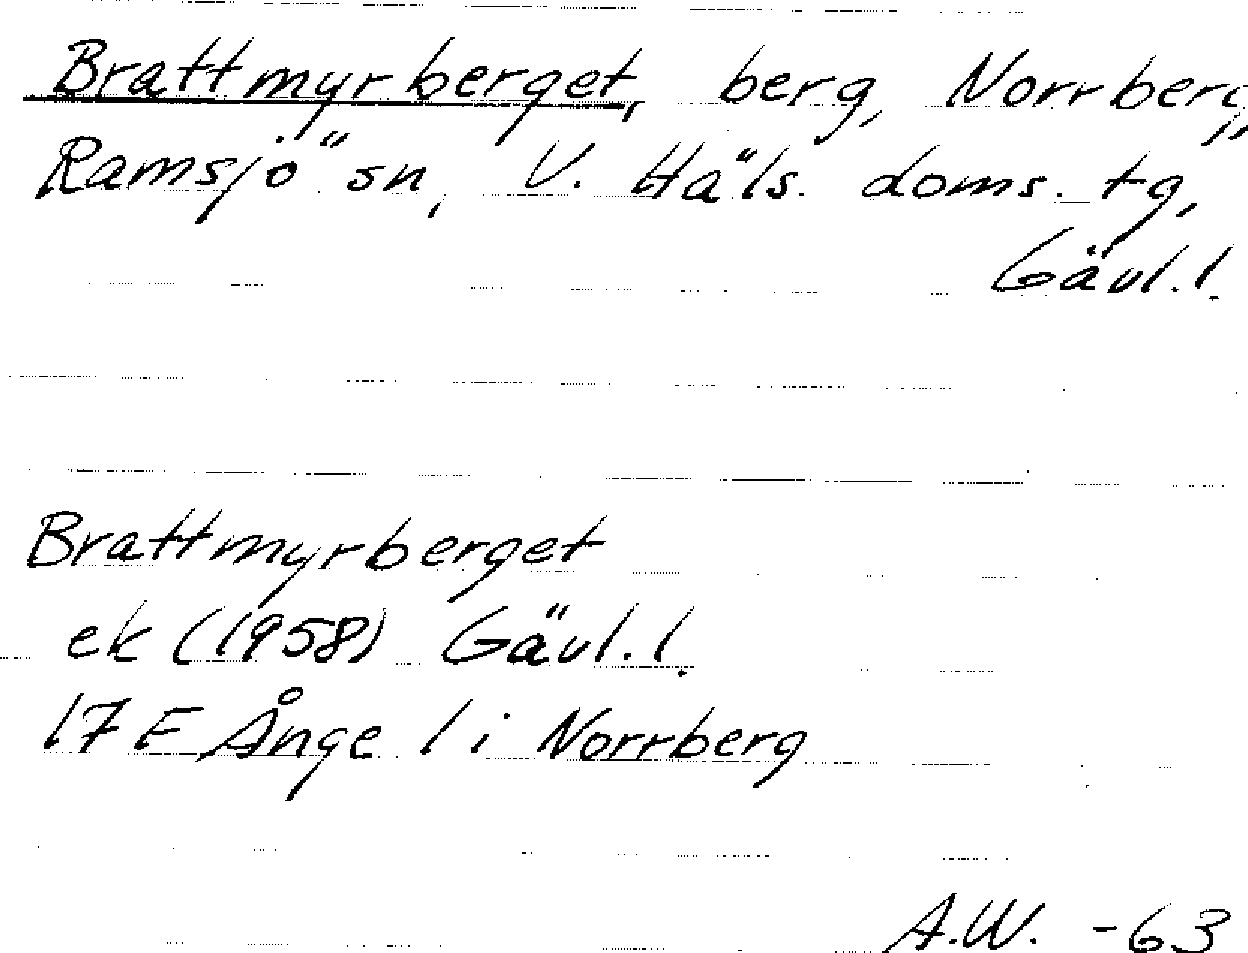 Brattmyrberget, berg, Norrberg,
Ramsjö sn, V. Häls. doms. tg,
Gävl.l.
Brattmyrberget
ek (1958) Gävl.l.
17 E Ånge 1 i Norrberg
A.W. -63